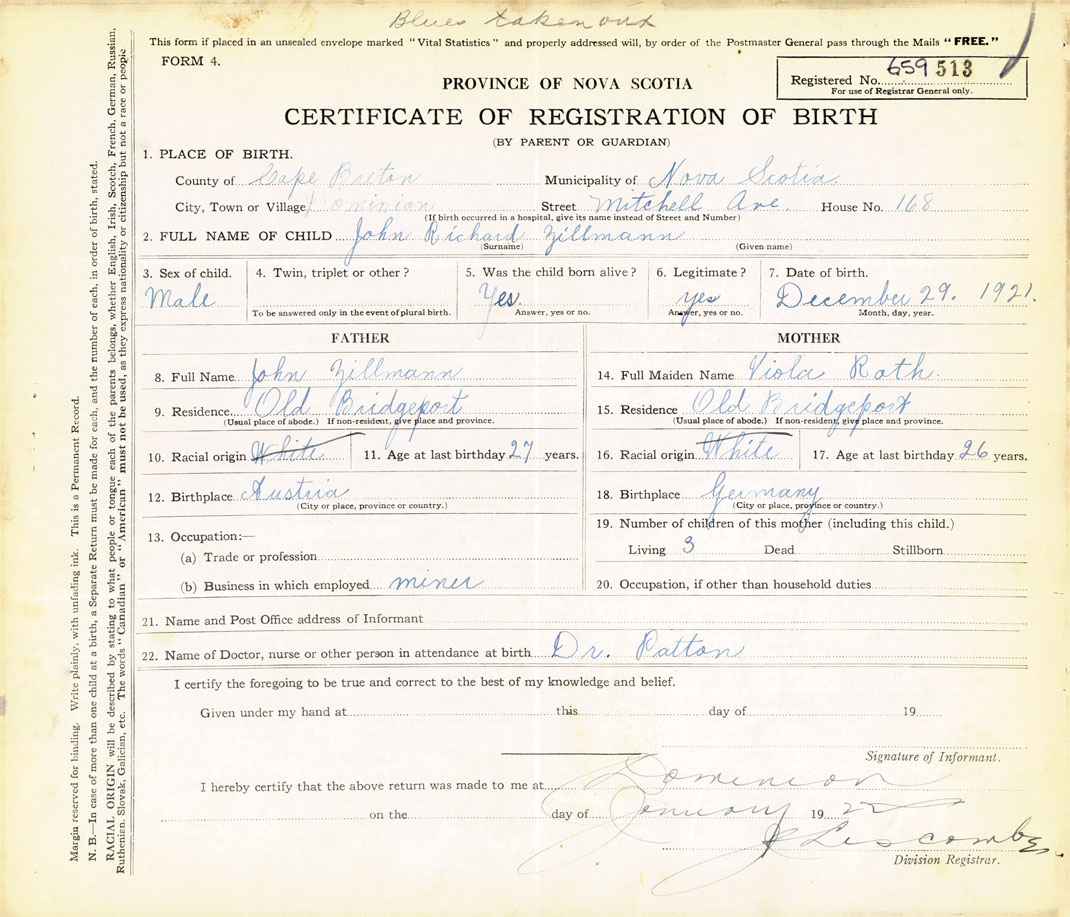 Blues taken out
This form if placed in an unsealed envelope marked "Vital Statistics" and properly addressed will, by order of the Postmaster General pass through the Mails "FREE."
FORM 4.
Registered No. 659513
For use of Registrar General only.
PROVINCE OF NOVA SCOTIA
CERTIFICATE OF REGISTRATION OF BIRTH
(BY PARENT OR GUARDIAN)
1. PLACE OF BIRTH.
County of Cape Breton Municipality of Nova Scotia
City, Town or Village Dominion Street Mitchell Ave. House No. 168
(If birth occurred in a hospital, give its name instead of Street and Number)
2. FULL NAME OF CHILD John Richard Zillmann
(Surname) (Given name)
3. Sex of child. 4. Twin, triplet or other? 5. Was the child born alive? 6. Legitimate? 7. Date of birth.
Male Yes. yes December 29. 1921.
To be answered only in the event of plural birth. Answer, yes or no. Answer, yes or no. Month, day, year.
FATHER MOTHER
8. Full Name John Zillmann 14. Full Maiden Name Viola Roth.
9. Residence Old Bridgeport 15. Residence Old Bridgeport
(Usual place of abode.) If non-resident, give place and province. (Usual place of abode.) If non-resident, give place and province.
10. Racial origin White 11. Age at last birthday 27 years. 16. Racial origin White 17. Age at last birthday 26 years.
12. Birthplace Austria 18. Birthplace Germany
(City or place, province or country.) (City or place, province or country.)
13. Occupation:— 19. Number of children of this mother (including this child.)
(a) Trade or profession Living 3 Dead Stillborn
(b) Business in which employed miner 20. Occupation, if other than household duties
21. Name and Post Office address of Informant
22. Name of Doctor, nurse or other person in attendance at birth Dr. Patton
I certify the foregoing to be true and correct to the best of my knowledge and belief.
Given under my hand at this day of 19
Signature of Informant.
I hereby certify that the above return was made to me at Dominion
on the day of January 19 22
J Lescombe
Division Registrar.
Margin reserved for binding. Write plainly, with unfading ink. This is a Permanent Record.
N. B.—In case of more than one child at a birth, a Separate Return must be made for each, and the number of each, in order of birth, stated.
RACIAL ORIGIN will be described by stating to what people or tongue each of the parents belongs, whether English, Irish, Scotch, French, German, Russian,
Ruthenian, Slovak, Galician, etc. The words "Canadian" or "American" must not be used, as they express nationality or citizenship but not a race or people